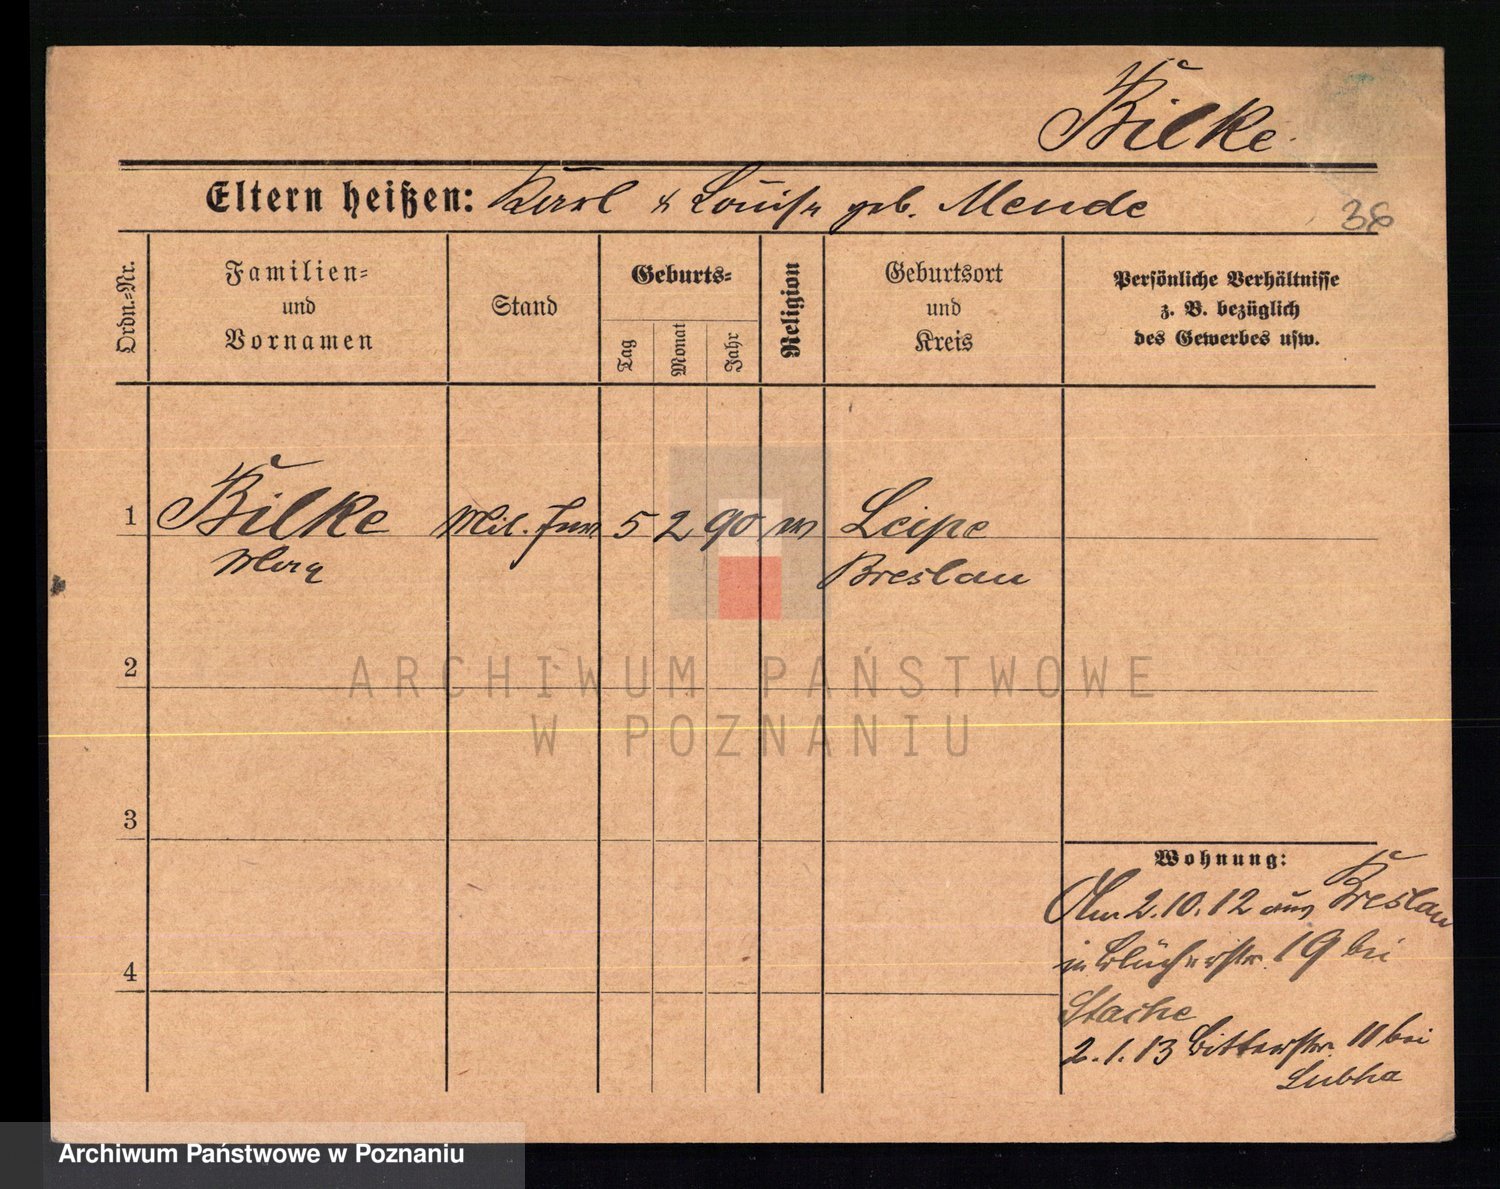 Bilke
Eltern heißen: Karl & Louise geb. Mende
38
Ordn.=Nr.
Familien=
und
Vornamen
Stand
Geburts=
Tag
Monat
Jahr
Religion
Geburtsort
und
Kreis
Persönliche Verhältnisse
z. B. bezüglich
des Gewerbes usw.
1 Bilke Mil. 5 2 90 Leipe
Max Breslau
2
ARCHIWUM PAŃSTWOWE
W POZNANIU
3
4
Wohnung:
2.10.12 aus Breslau
in Blücherstr. 19 bei
Stache
2.1.13 Bitterstr. 11 bei
Lubha
Archiwum Państwowe w Poznaniu